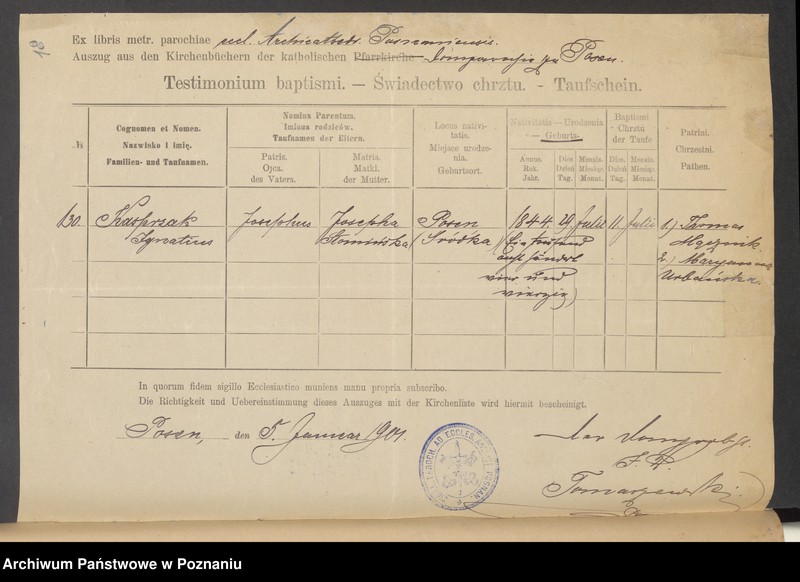 18
Ex libris metr. parochiae eccl. Archicathedr. Posnaniensis.
Auszug aus den Kirchenbüchern der katholischen Pfarrkirche Domparochie zu Posen.
Testimonium baptismi. — Świadectwo chrztu. - Taufschein.
№
Cognomen et Nomen.
Nazwisko i imię.
Familien- und Taufnamen.
Nomina Parentum.
Imiona rodziców.
Taufnamen der Eltern.
Patris.
Ojca.
des Vaters.
Matris.
Matki.
der Mutter.
Locus nativi-
tatis.
Miejsce urodze-
nia.
Geburtsort.
Nativitatis — Urodzenia
— Geburts.
Annus.
Rok.
Jahr.
Dies
Dzień
Tag.
Mensis.
Miesiąc.
Monat.
Baptismi
- Chrztu
der Taufe
Dies.
Dzień
Tag.
Mensis.
Miesiąc.
Monat.
Patrini.
Chrzestni.
Pathen.
130.
Kasprzak
Ignatius
Josephus
Josepha
Słomińska
Posen
(Śródka
1844.
(Ein tausend
acht hundert
vier und
vierzig)
29.
Juli
11.
Julii
1.) Thomas
Mącznik.
2.) Maryanna
Urbańska.
In quorum fidem sigillo Ecclesiastico muniens manu propria subscribo.
Die Richtigkeit und Uebereinstimmung dieses Auszuges mit der Kirchenliste wird hiermit bescheinigt.
Posen, den 5. Januar 1901.
Der Dompropst.
Tomaszewski
PAROCH. AD ECCLES. POSNAN.
Archiwum Państwowe w Poznaniu